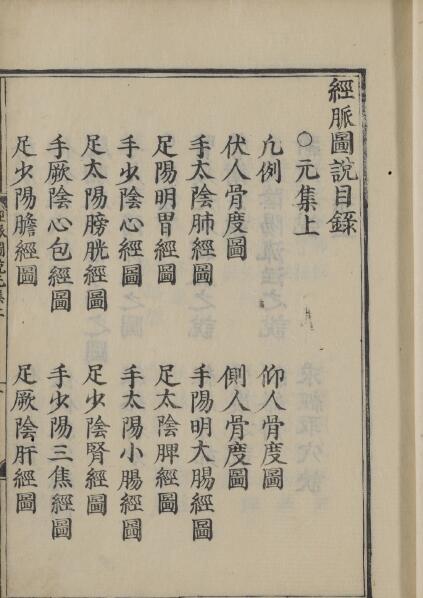 經脈圖說目錄
○元集上
凢例
仰人骨度圖
伏人骨度圖
側人骨度圖
手太陰肺經圖
手陽明大腸經圖
足陽明胃經圖
足太陰脾經圖
手少陰心經圖
手太陽小腸經圖
足太陽膀胱經圖
足少陰腎經圖
手厥陰心包經圖
手少陽三焦經圖
足少陽膽經圖
足厥陰肝經圖